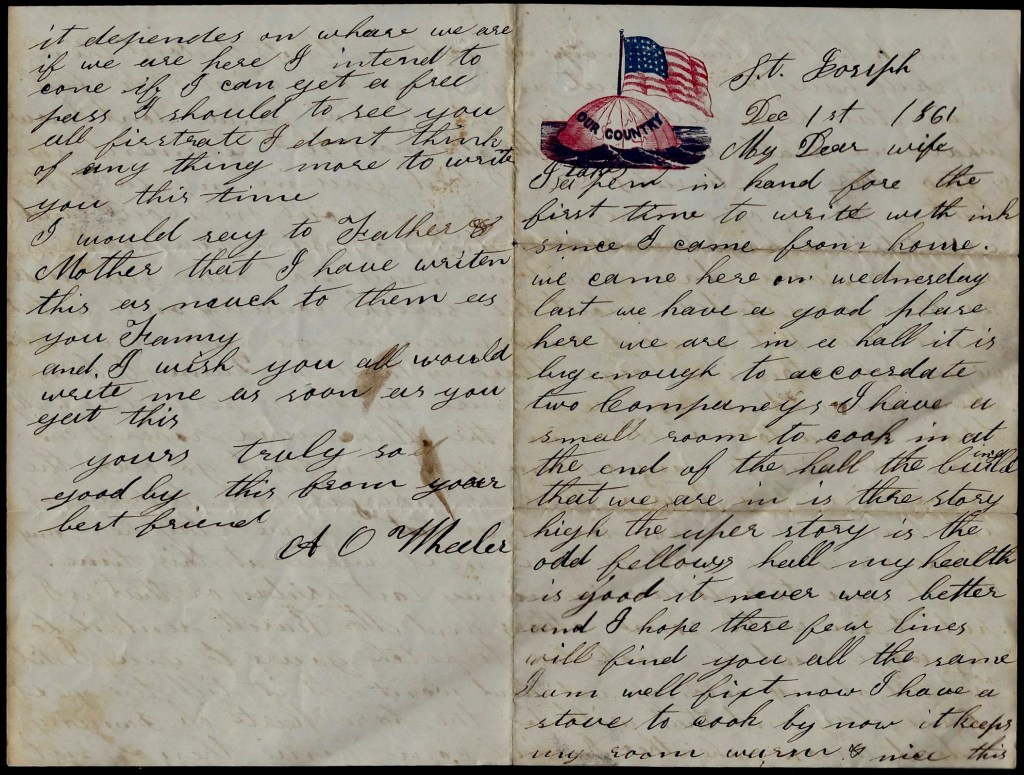 OUR COUNTRY
St. Joriph
Dec 1st 1861
My Dear wife
I take a pen in hand fore the
first time to write with ink
since I came from home.
we came here on wednesday
last we have a good plase
here we are in a hall it is
big enough to accoerdate
two Companeys I have a
small room to cook in at
the end of the hall the building
that we are in is thre story
high the uper story is the
odd fellows hall my health
is good it never was better
and I hope these few lines
will find you all the same
I am well fixt now I have a
stove to cook by now it keeps
my room warm & nice this
it dependes on whare we are
if we are here I intend to
come if I can get a free
pass I should to see you
all firstrate I dont think
of any thing more to write
you this time
I would say to Father &
Mother that I have writen
this as much to them as
you Fanny
and I wish you all would
write me as soon as you
gat this
yours truly so
good by this from your
best friend
A O Wheeler